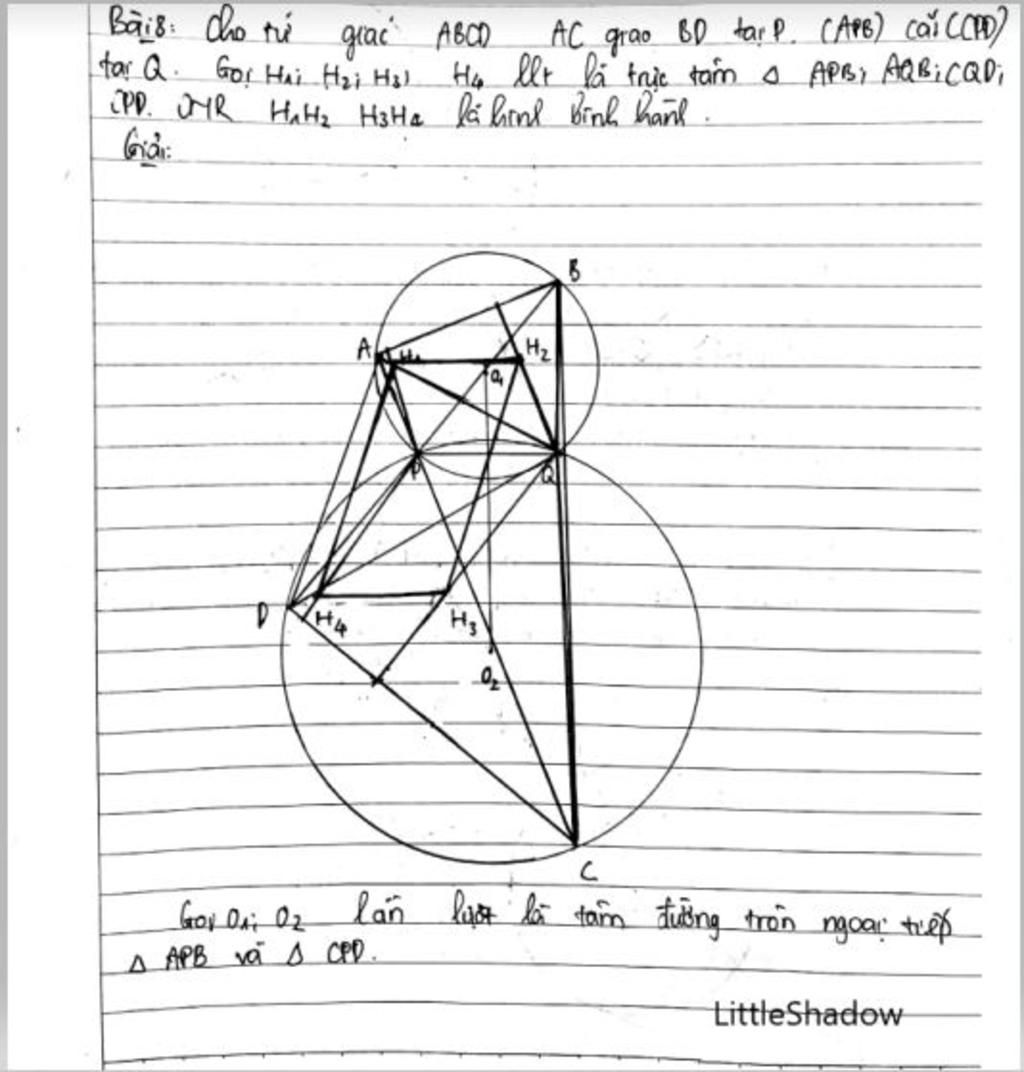 Bài 8: Cho tứ giác ABCD AC giao BD tại P. (APB) cắt (CPD)
tại Q. Gọi H1; H2; H3; H4 llt là trực tâm Δ APB; AQB; CQD;
CPD. CMR H1H2 H3H4 là hình bình hành.
Giải:
B
A H1 H2
O1
P Q
D H4 H3
O2
C
Gọi O1; O2 lần lượt là tâm đường tròn ngoại tiếp
Δ APB và Δ CPD.
LittleShadow